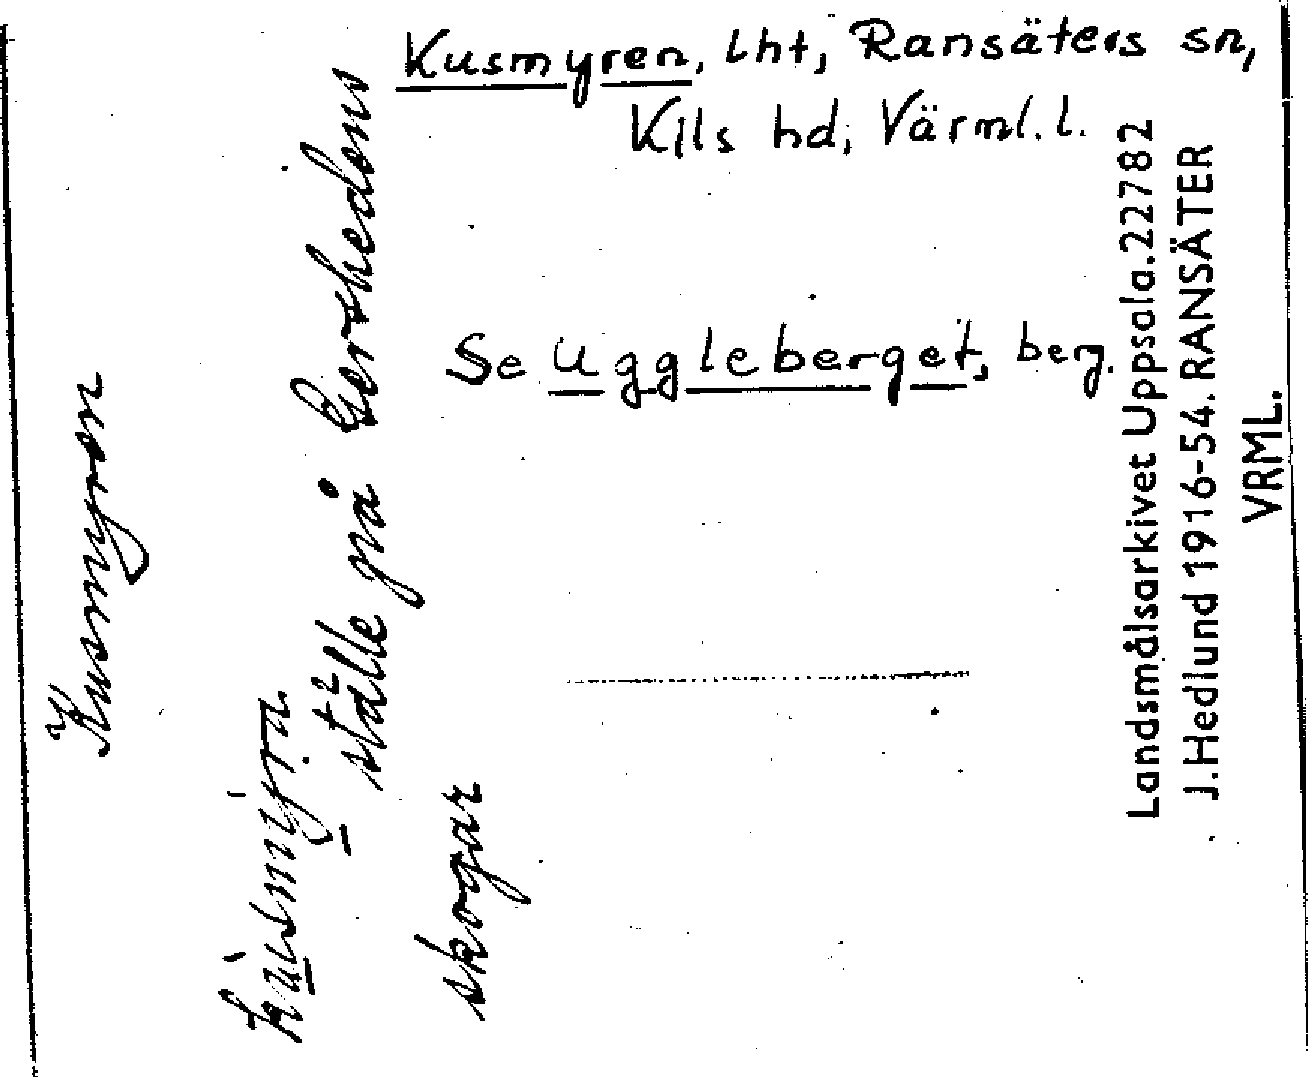 Kusmyren, lht, Ransäters sn,
Kils hd, Värml. l.
Se Uggleberget, berg.
Kusmyren
ställe på
skogar
Landsmålsarkivet Uppsala. 22782
J. Hedlund 1916-54. RANSÄTER
VRML.